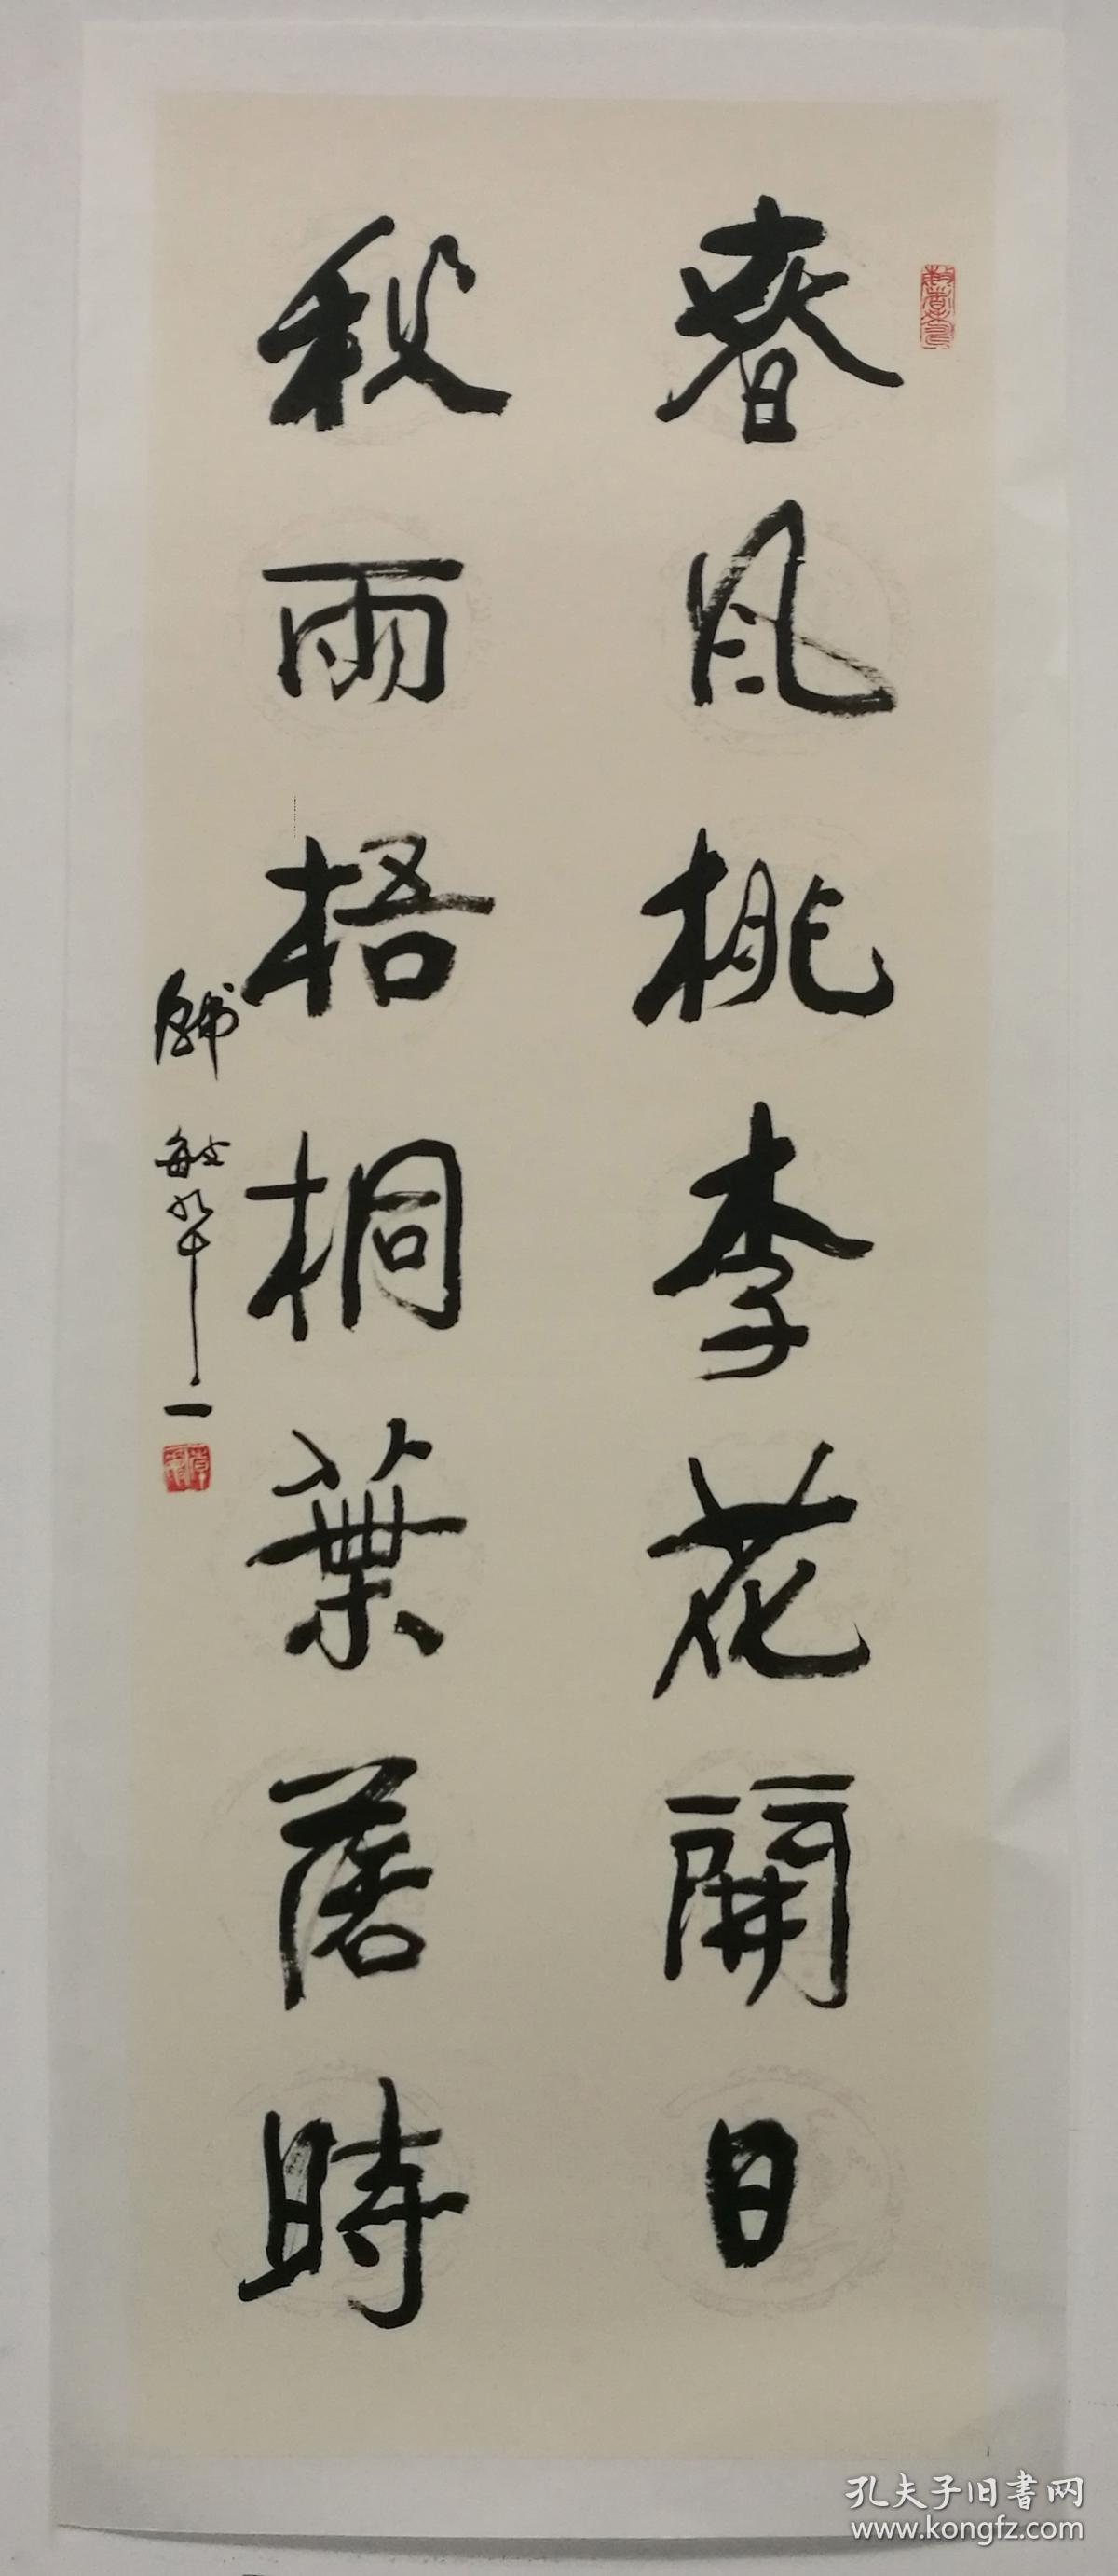 春風桃李花開日
秋雨梧桐葉落時
孔夫子旧書网
www.kongfz.com